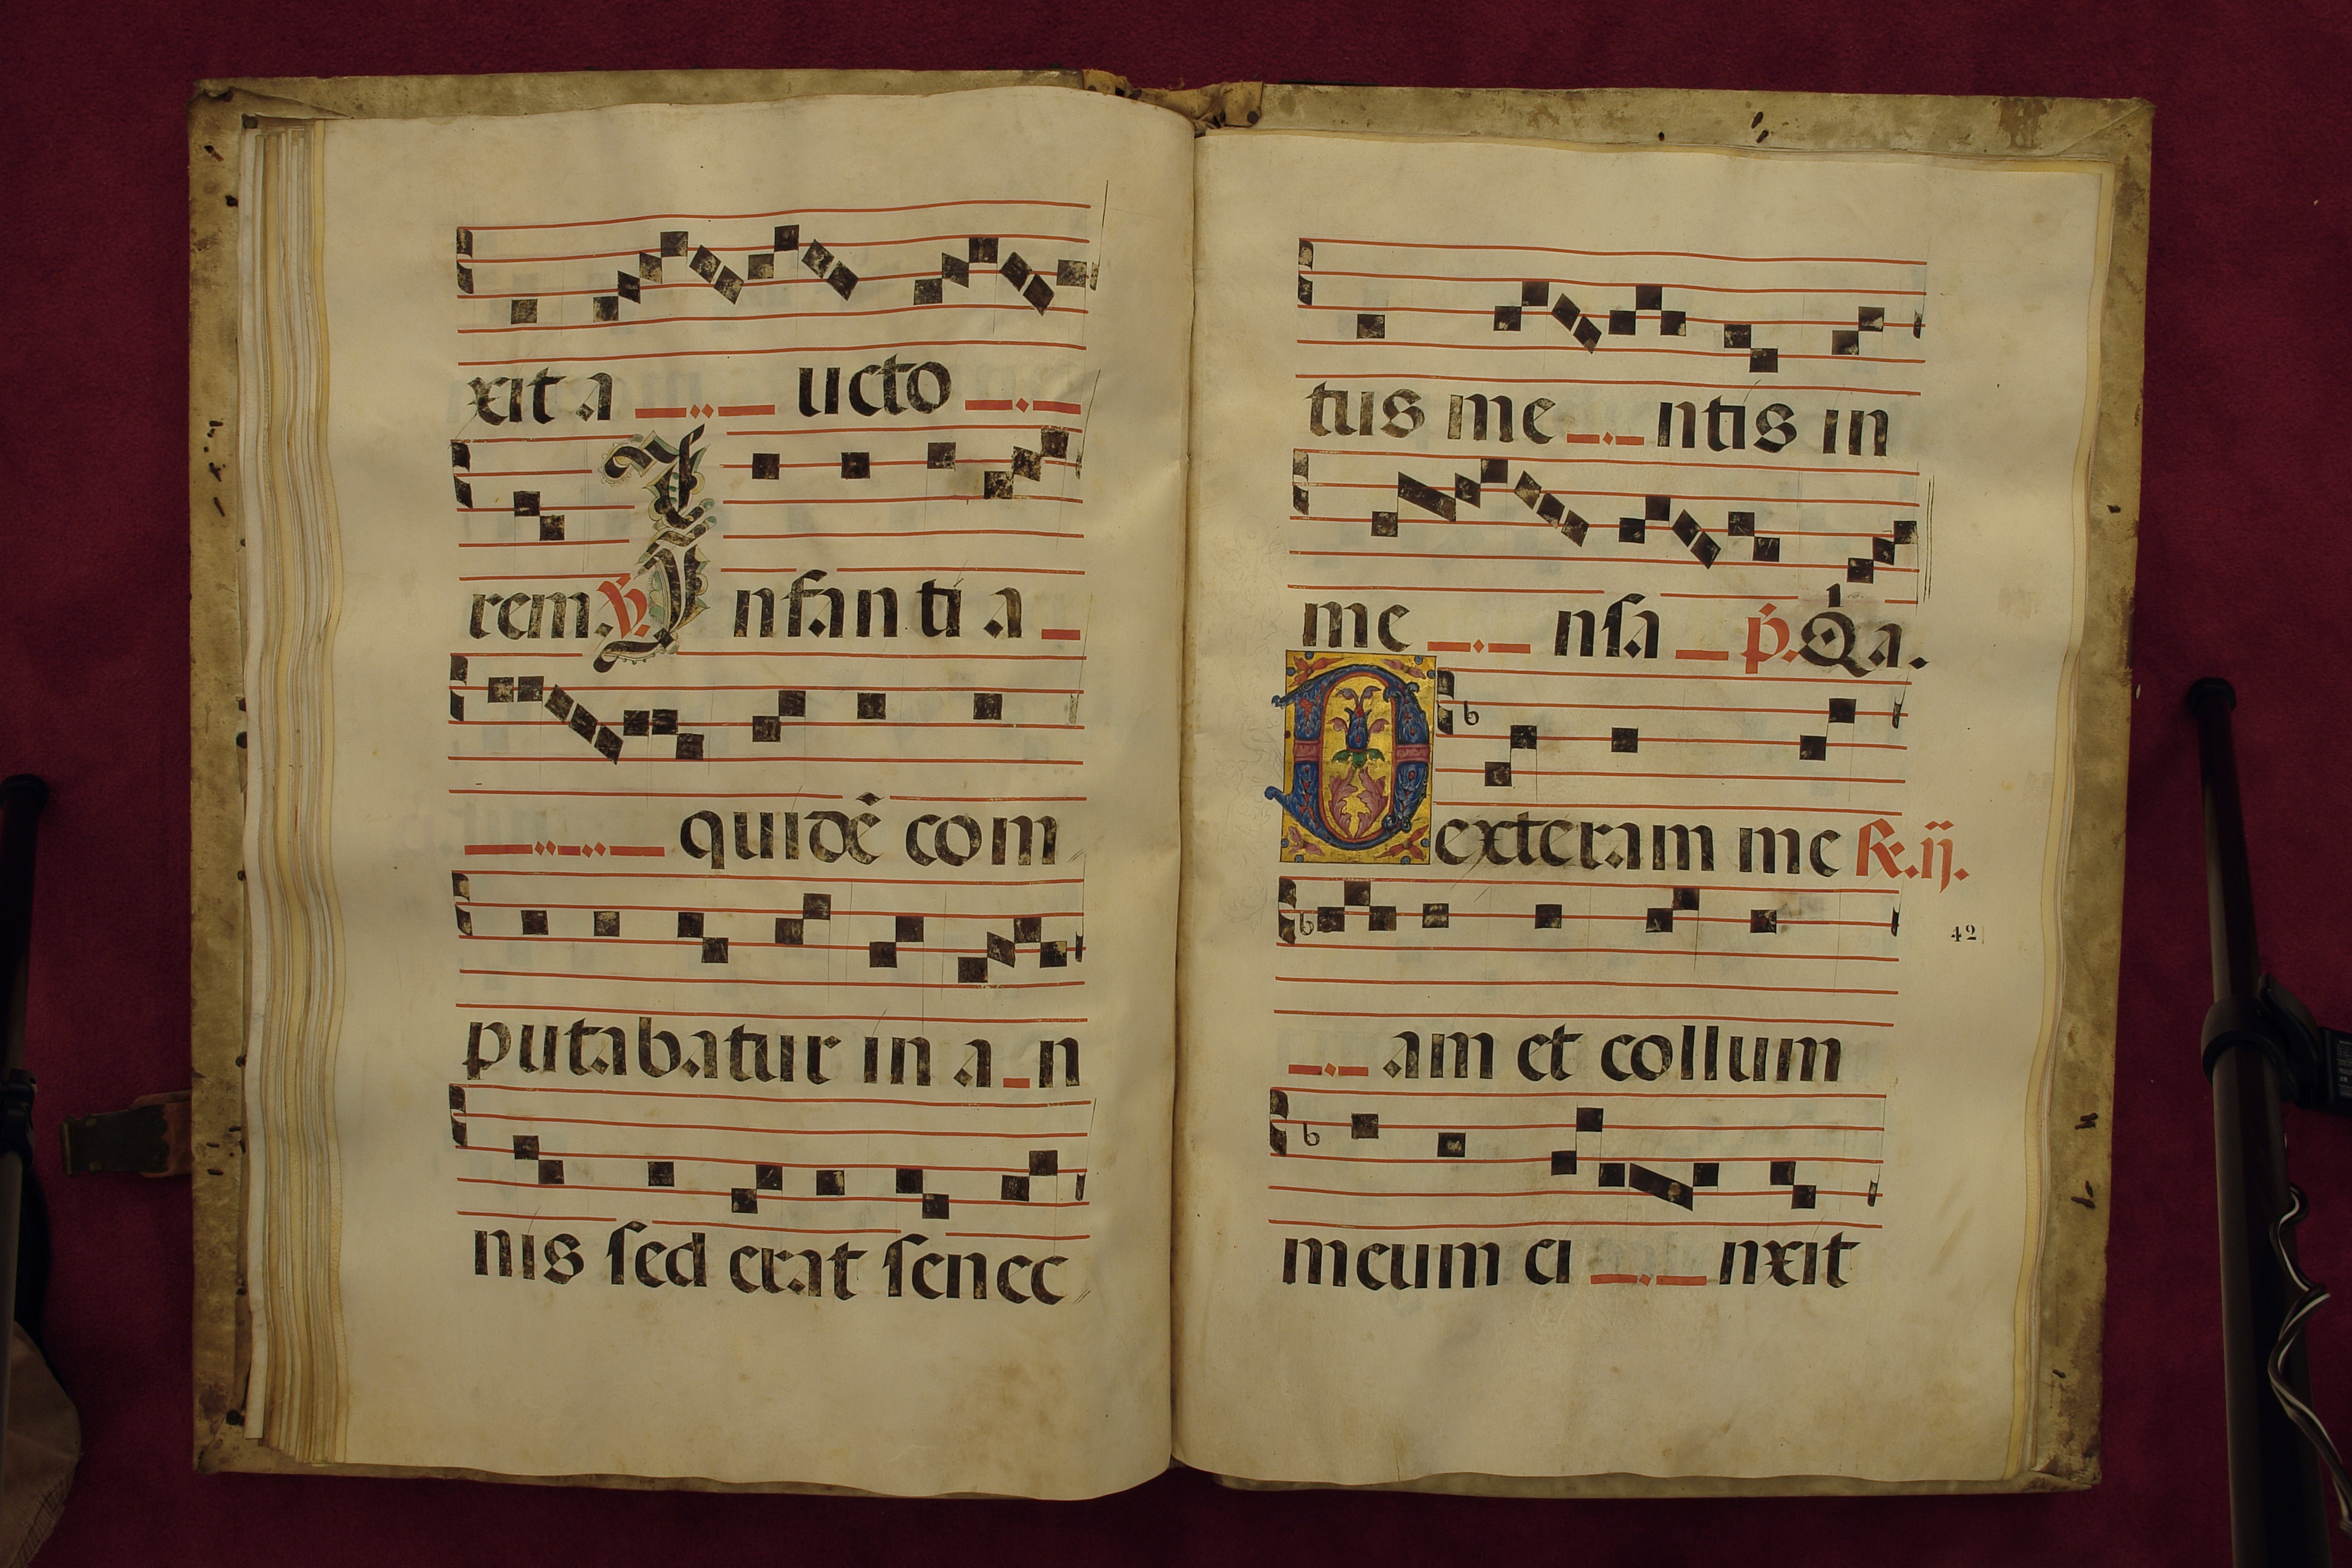 xit a ucto
rem. ℣. Infanti a
quidē com
putabatur in a n
nis ſed erat ſenec
tus me ntis in
me nſa p̄. Qa.
Dexteram me ℟. ij.
42
am et collum
meum ci nxit